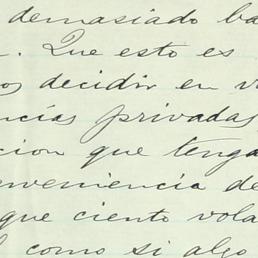 demasiado ba
. Que esto es
os decidir en v
ncias privadas,
cion que tenga
nveniencia de
que ciento vola
como si algo